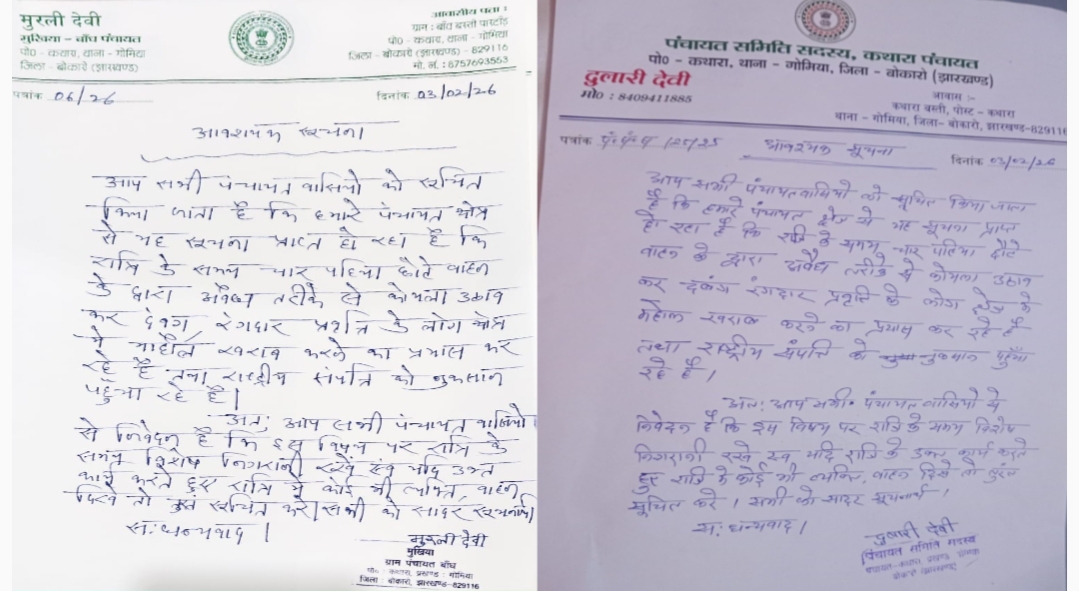 मुरली देवी
मुखिया - बाँध पंचायत
पो0 - कथारा, थाना - गोमिया
जिला - बोकारो (झारखण्ड)
आवासीय पता :
ग्राम : बाँध बस्ती
पो0 - कथारा, थाना - गोमिया
जिला - बोकारो (झारखण्ड) - 829116
मो. नं. : 8757693553
पत्रांक 06/26
दिनांक 03/02/26
आवश्यक सूचना
आप सभी पंचायत वासियो को सूचित
किया जाता है कि हमारे पंचायत क्षेत्र
से यह सूचना प्राप्त हो रहा है कि
रात्रि के समय चार पहिया छोटे वाहन
के द्वारा अवैध तरीके से कोयला उठाव
कर दंबग रंगदार प्रवृत्ति के लोग क्षेत्र
मे माहौल खराब करने का प्रयास कर
रहे है तथा राष्ट्रीय संपत्ति को नुकसान
पहुँचा रहे है।
अतः आप सभी पंचायत वासियो
से निवेदन है कि इस विषय पर रात्रि के
समय विशेष निगरानी रखें एंव यदि उक्त
कार्य करते हुए रात्रि मे कोई भी व्यक्ति, वाहन
दिखे तो सूचित करे। सभी को सादर सूचनार्थ
सः धन्यवाद।
मुरली देवी
मुखिया
ग्राम पंचायत बाँध
पो० - कथारा, प्रखण्ड : गोमिया
जिला : बोकारो, झारखण्ड-829116
पंचायत समिति सदस्य, कथारा पंचायत
पो0 - कथारा, थाना - गोमिया, जिला - बोकारो (झारखण्ड)
दुलारी देवी
मो0 : 8409411885
आवास :-
कथारा बस्ती, पोस्ट - कथारा
थाना - गोमिया, जिला- बोकारो, झारखण्ड-829116
पत्रांक
आवश्यक सूचना
दिनांक 03/02/26
आप सभी पंचायतवासियो को सूचित किया जाता
है कि हमारे पंचायत क्षेत्र से यह सूचना प्राप्त
हो रहा है कि रात्रि के समय चार पहिया छोटे
वाहन के द्वारा अवैध तरीके से कोयला उठाव
कर दबंग रंगदार प्रवृत्ति के लोग क्षेत्र मे
महौल खराब करने का प्रयास कर रहे है
तथा राष्ट्रीय संपत्ति को नुकसान पहुँचा
रहे है।
अतः आप सभी पंचायत वासियो से
निवेदन है कि इस विषय पर रात्रि के समय विशेष
निगरानी रखे एंव यदि रात्रि के उक्त कार्य करते
हुए रात्रि के कोई भी व्यक्ति, वाहन दिखे तो तुरंत
सूचित करे। सभी को सादर सूचनार्थ।
सः धन्यवाद।
दुलारी देवी
पंचायत समिति सदस्य